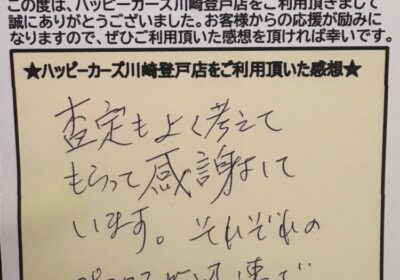 この度は、ハッピーカーズ川崎登戸店をご利用頂きまして
誠にありがとうございました。お客様からの応援が励みに
なりますので、ぜひご利用頂いた感想を頂ければ幸いです。
★ハッピーカーズ川崎登戸店をご利用頂いた感想★
査定もよく考えて
もらって感謝して
います。それぞれの